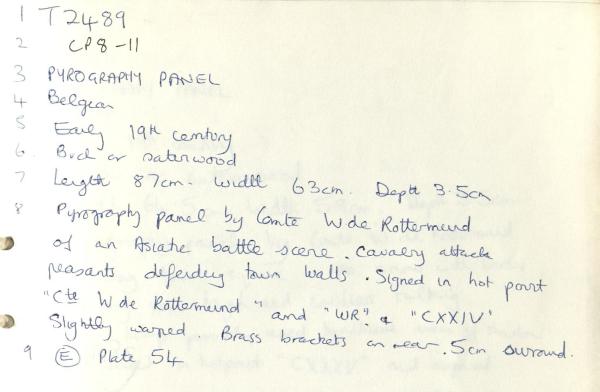 1 T2489
2 CP8-11
3 PYROGRAPHY PANEL
4 Belgian
5 Early 19th century
6. Birch or satinwood
7 Length 87cm. Width 63cm. Depth 3.5cm
8 Pyrography panel by Comte W de Rottermund
of an Asiatic battle scene. Cavalry attack
peasants defending town walls. Signed in hot point
"Cte W de Rottermund" and "WR" & "CXXIV"
Slightly warped. Brass brackets on rear. 5cm surround.
9 (E) Plate 54